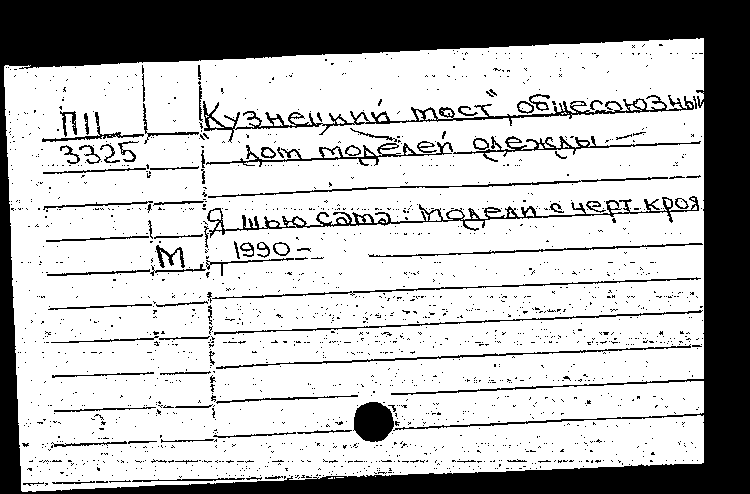 ПII Кузнецкий мост", общесоюзный
3325 дом моделей одежды —
Я шью сама: Модели с черт. кроя
М 1990-